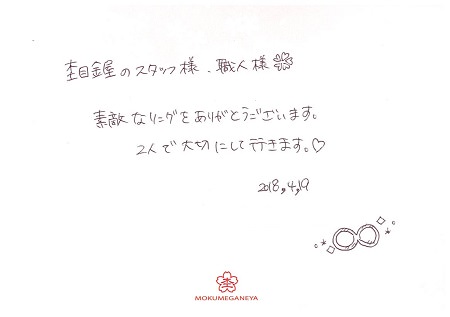 杢目金屋のスタッフ様、職人様
素敵なリングをありがとうございます。
2人で大切にして行きます。♡
2018,4,19
杢
MOKUMEGANEYA